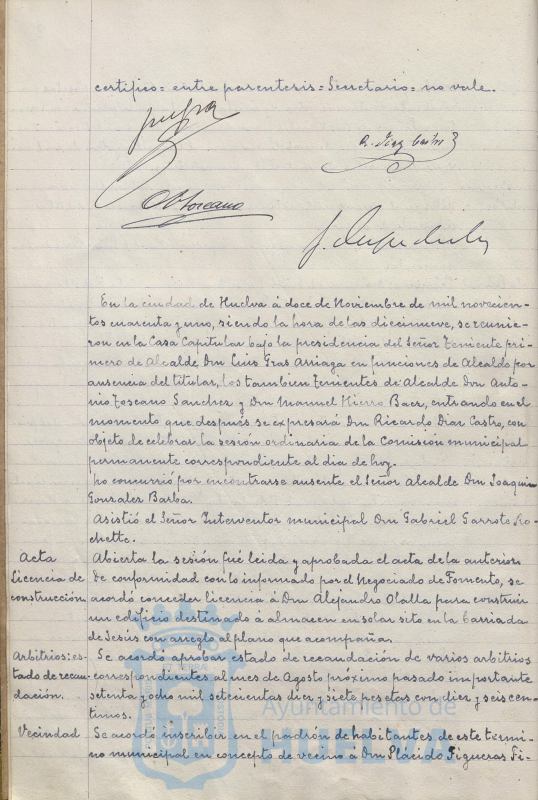 certifico = entre parentesis = Secretario = no vale.
R. Diaz Castro
A Toscano
En la ciudad de Huelva á doce de Noviembre de mil novecien-
tos cuarenta y uno, siendo la hora de las diecinueve, se reunie-
ron en la Casa Capitular bajo la presidencia del Señor Teniente pri-
mero de Alcalde Don Luis Gras Arriaga en funciones de Alcalde por
ausencia del titular, los tambien Tenientes de Alcalde Don Anto-
nio Toscano Sanchez y Don Manuel Hierro Baez, entrando en el
momento que después se expresará Don Ricardo Diaz Castro, con
objeto de celebrar la sesión ordinaria de la Comisión municipal
permanente correspondiente al dia de hoy.
No concurrió por encontrarse ausente el Señor Alcalde Don Joaquin
Gonzalez Barba.
Asistió el Señor Interventor municipal Don Gabriel Garrote Ro-
chette.
Acta
Abierta la sesión fué leida y aprobada el acta de la anterior.
Licencia de
construcción
De conformidad con lo informado por el Negociado de Fomento, se
acordó conceder licencia á Don Alejandro Olalla para construir
un edificio destinado á almacen en solar sito en la barriada
de Jesús con arreglo al plano que acompaña.
Arbitrios: es-
tado de recau-
dación.
Se acordó aprobar estado de recaudación de varios arbitrios
correspondientes al mes de Agosto próximo pasado importante
setenta y ocho mil setecientas diez y siete pesetas con diez y seis cen-
timos.
Vecindad
Se acordó inscribir en el padrón de habitantes de este térmi-
no municipal en concepto de vecino á Don Plácido Figueras Fi-
Ayuntamiento de
HUELVA